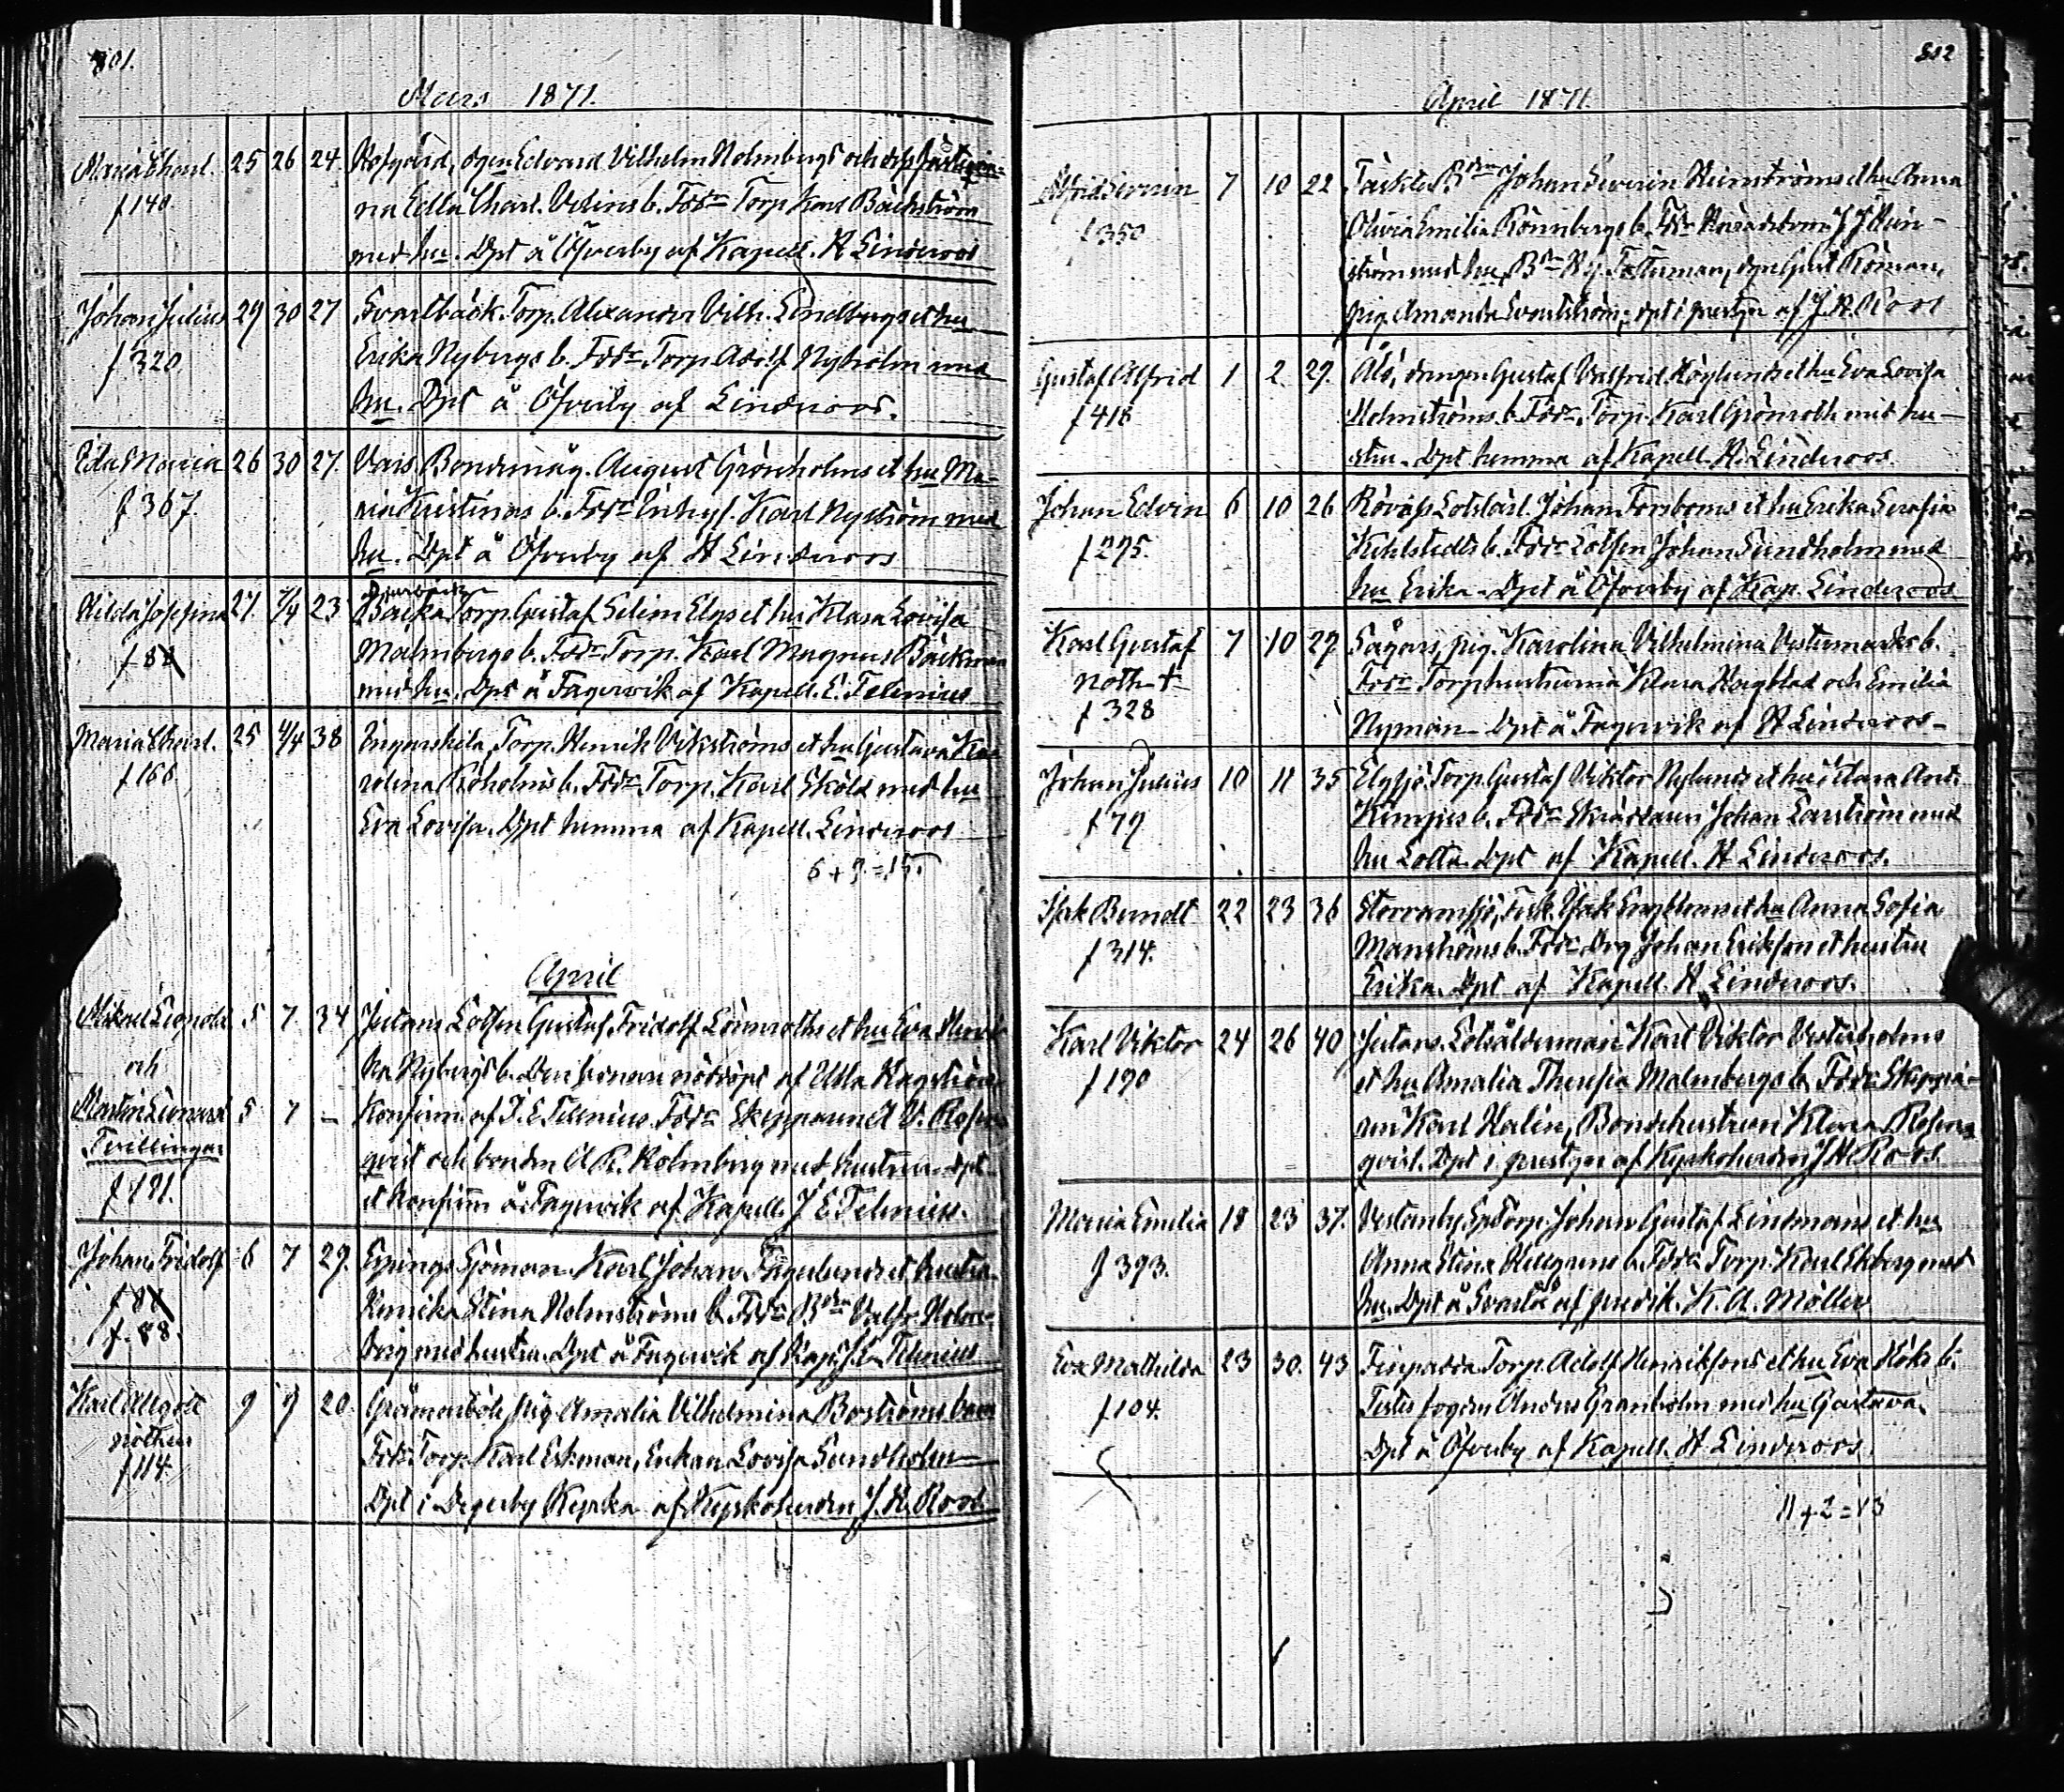 301.
Mars 1871.
Maria Charl. 25 26 24. Hofgård, drgen Edvard Vilhelm Holmbergs och
f 140. na Edla Charl. Velins b. Fddr Torp Karl Bäckström
med hu. Dpt å Öfverby af Kapell. H Linderoos
Johan Julius 29 30 27 Svartbäck Torp. Alexander Vilh. Lindbergs et hu
f 320 Erika Nybergs b. Fddr Torp. Adolf Nyholm med
hu. Dpt å Öfverby af Linderoos.
Ida Maria 26 30 27. Vars Bondemåg. August Grönholms et hu Ma-
f 367. ria Kristinas b. Fddr Inhys. Karl Nyström med
hu. Dpt å Öfverby af H Linderoos
Hilda Josefina 27. 1/4 23 Backa Torp. Gustaf Selim Elgs et hu Klara Lovisa
f 88 Malmbergs b. Fddr Torp. Karl Magnus Bäckman
med hu. Dpt å Fagervik af Kapell. E. Telenius
Maria Charl. 25 4/4 38 Ingarskila, Torp. Henrik Vikströms et hu Gustava Ka-
f 166 rolina b. Fddr Torp. Karl Sköld med hu
Eva Lovisa. Dpt hemma af Kapell. Linderoos
6 + 9 = 15.
April
Mikael Leopold 5 7 34 Jutans Lotsen Gustaf Fridolf Lönnroths et hu Eva
och na Nybergs b. Den förnen nöddöpt af Ulla
Martin Leonard 5 7 – Konfirm. af J. E. Telenius. Fddr Skepparen A V. Rosen
Tvillingar qvist och bonden A R. Holmberg med hustru. Dpt
f 191. et konfirm å Fagervik af Kapell. J E Telenius.
Johan Fridolf 6 7 29. Espings Sjöman Karl Johan Fagerlunds et hustru
f 88 Henrika Stina Holmströms b. Fddr Bdn Valfr. Holm-
f. 88. berg med hustru. Dpt å Fagervik af Kap. J. E. Telenius
Karl Algott 9 9 20. pig. Amalia Vilhelmina Boströms barn
nothus Fddr Torp. Karl Ekman, Enkan Lovisa Sundholm
f 114. Dpt i Degerby Kyrka af Kyrkoherden J. H. Roos
302
April 1871.
Alfrid Severin 7 10 22 Täckter Bdn Johan Severin Heinströms et hu Anna
f 350 Olivia Emilia Rönnbergs b. Fddr J J Hein-
ström med hu, Bdn Dräng Gust Roman,
pig. Amanda Evaldström; dpt i prestg. af J. H. Roos
Gustaf Alfrid 1 2. 29. Alö, drängen Gustaf Valfrid Höglunds et hu Eva Lovisa
f 418 Holmströms b. Fddr Torp. Karl Grönroth med hu-
stru. Dpt hemma af Kapell. H. Linderoos.
Johan Edvin 6 10 26 Rövass Lotslärl. Johan Forsboms et hu Erika Serafia
f 295. Kihlstedts b. Fddr Lotsen Johan Sundholm med
hu Erika. Dpt å Öfverby af Kap. Linderoos
Karl Gustaf 7 10 29 Sågars, pig. Karolina Vilhelmina Vestermarks b.
noth † Fddr Torphustrurna Klara Hagblad och Emilia
f 328 Nyman. Dpt å Fagervik af H Linderoos.
Johan Julius 10 11 35 Elgsjö Torp. Gustaf Viktor Nylunds et hu Klara Ant.
f 79 b. Fddr Skräddaren Johan Carström med
hu Lotta. Dpt af Kapell. H Linderoos.
Isak Berndt 22 23 36 Storramsjö, Fisk. Isak Engbloms et hu Anna Sofia
f 314. Manströms b. Fddr Drg Johan Erikson et hustru
Erika. Dpt af Kapell. H Linderoos.
Karl Viktor 24 26 40 Jutans. Lotsålderman Karl Viktor Vesterholms
f 190 et hu Amalia Theresia Malmbergs b. Fddr Skeppa-
ren Karl Halin, Bondehustrun Klara Rosen-
qvist. Dpt i prestgn af Kyrkoherden J H. Roos.
Maria Emilia 18 23 37. Vestanby Torp. Johan Gustaf Lindmans et hu
f 393. Anna Stina b. Fddr Torp. Karl Ekberg med
hu. Dpt å Svartå af predik. K. A. Möller
Eva Mathilda 23 30. 43 Finpadda Torp. Adolf Henriksons et hu Eva Höks b.
f 104. Testes fogden Anders Granholm med hu Gustava.
Dpt å Öfverby af Kapell. H. Linderoos.
11 + 2 = 13